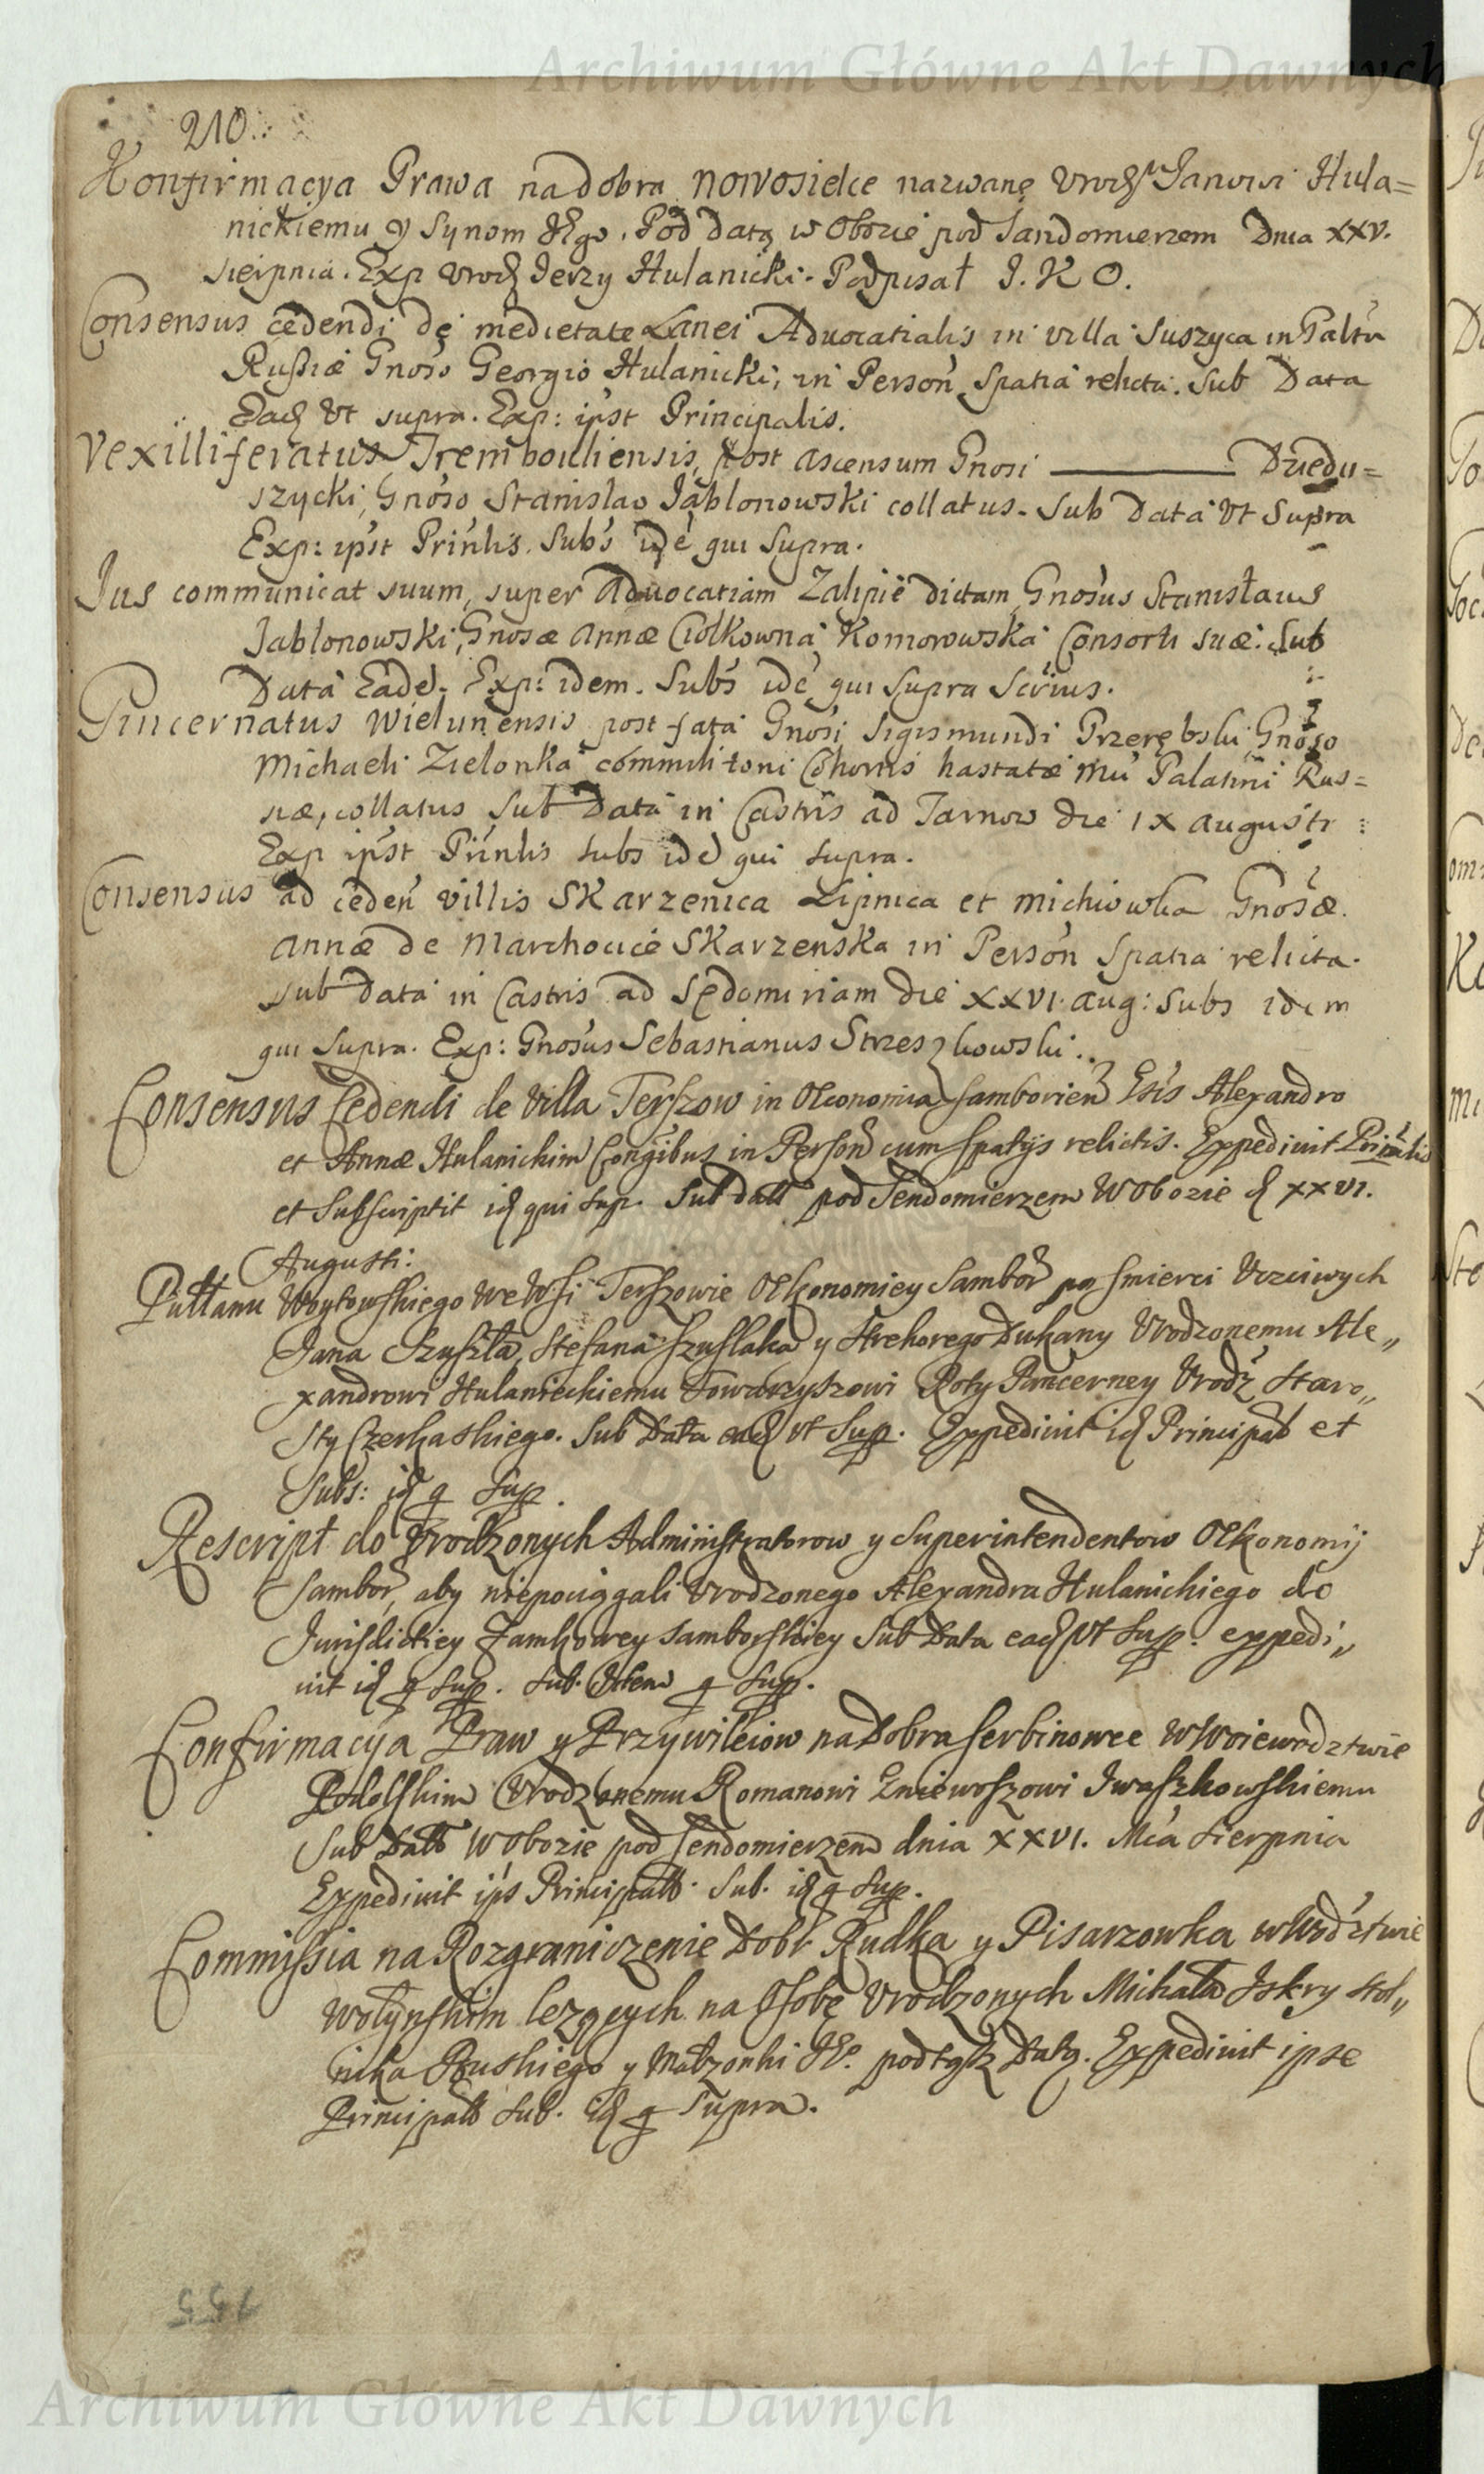 Archiwum Główne Akt Dawnych
210.
Konfirmacya Prawa na dobra Nowosielce nazwanę Urodz Janowi Hula=
nickiemu y Synom JEgo. Pod datą w Obozie pod Sandomierzem Dnia XXV.
Sierpnia. Exp Urodz Jerzy Hulanicki. Podpisał J. K O.
Consensus cedendi de medietate Lanei Advocatialis in villa Suszyca in Paltu
Russiæ Gnoso Georgio Hulanicki, in Person Spatia relicta. Sub Data
Ead Ut supra. Exp: ipst Principalis.
Vexilliferatus Trembouliensis, post ascensum Gnosi ——— Dziedu=
szycki, Gnoso Stanislao Jablonowski collatus. Sub Data Ut Supra
Exp: ipst Prinlis. Subs ide qui Supra.
Jus communicat suum, super Advocatiam Zalipie dictam, Gnosus Stanisłaus
Jablonowski, Gnosæ Annæ Ciołkowna Komorowska Consorti suæ. Sub
Data Eade. Exp: idem. Subs ide qui Supra Serius.
Pincernatus Wielunensis post fata Gnosi Sigismundi Przerębski Gnoso
Michaeli Zielonka commilitoni Cohortis hastatæ Palatini Rus=
siæ, collatus Sub Data in Castris ad Tarnow die IX Augusti
Exp ipst Prinlis Subs ide qui Supra.
Consensus ad ceden villis Skarzenica Lipnica et Michiowka Gnosæ
Annæ de Marchocice Skarzenska in Person Spatia relicta.
Sub Data in Castris ad Sędomiriam die XXVI. Aug: Subs idem
qui Supra. Exp: Gnosus Sebastianus Strzeszkowski.
Consensus Cedendi de Villa Terszow in Oeconomia Samborien Gsis Alexandro
et Annæ Hulanickim Congibus in Person cum spatijs relictis. Expedivit Prinalis
et Subscriptit id qui sup. Sub datt pod Sendomierzem W Obozie d XXVI.
Augusti:
Pułłanu Woytowskiego We Wsi Terszowie OEkonomiey Sambor po smierci Uczciwych
Jana Szuszla, Stefana Szuslaka y Hrehorego Dukany Urodzonemu Ale„
xandrowi Hulanickiemu Towarzyszowi Roty Pancerney Urodz Staro„
sty Czerkaskiego. Sub Data ead ut Sup. Expedivit id Principal et
Subs: id q Sup.
Rescript do Urodzonych Administratorow y Superintendentow OEkonomij
Sambor, aby niepociągali Urodzonego Alexandra Hulanickiego do
Jurisdictiey Zamkowey Samborskiey Sub Data ead Ut Sup. expedi„
vit id q Sup. Sub. Idem q Sup.
Confirmacya Praw y Przywileiow na Dobra Serbinowce W Woiewodztwie
Podolskim Urodzonemu Romanowi Gniewoszowi Iwaszkowskiemu
Sub Datt W Obozie pod Sendomierzem dnia XXVI. Mca Sierpnia
Expedivit ips Principalis. Sub. id q Sup.
Commissia na Rozgraniczenie Dobr Rudka y Pisarzowka w Wodztwie
Wołynskim lezących na Osobę Urodzonych Michała Iskry Stol„
nika Ruskiego y Małzonki JEo. pod tąsz Datą. Expedivit ipse
Principalis Sub. id q Supra.
155
Archiwum Główne Akt Dawnych